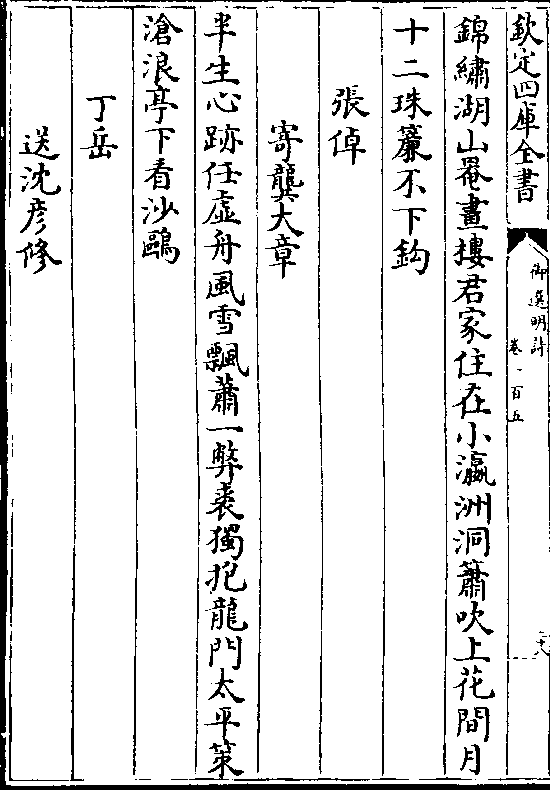 欽定四庫全書
御選明詩
卷一百五
錦繡湖山罨畫摟君家住在小瀛洲洞簫吹上花間月
十二珠簾不下鈎
張倬
寄龔大章
半生心跡任虛舟風雪飄蕭一弊裘獨抱龍門太平策
滄浪亭下看沙鷗
丁岳
送沈彦修